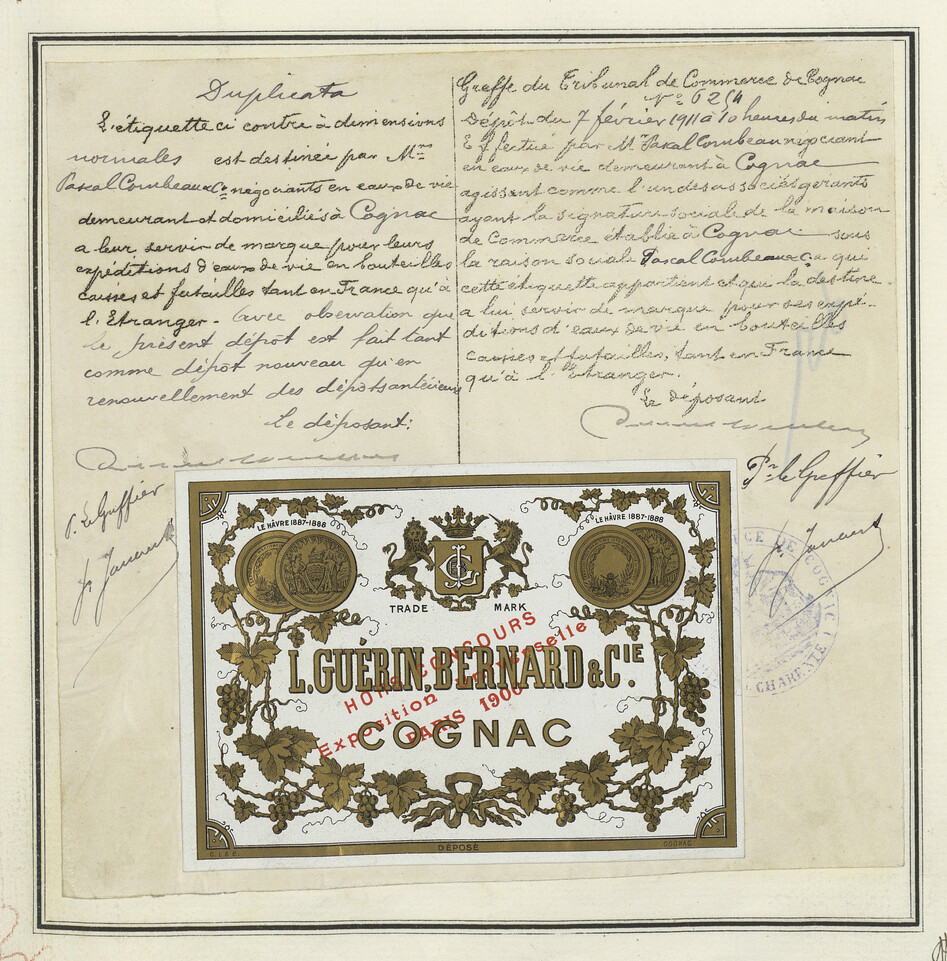 Duplicata
L'étiquette ci contre à dimensions
normales est destinée par Mrs
Pascal Combeau & Cie négociants en eaux de vie
demeurant et domiciliés à Cognac
a leur servir de marque pour leurs
expéditions d'eaux de vie en bouteilles
caisses et futailles tant en France qu'à
l'Etranger. avec observation que
le présent dépôt est fait tant
comme dépôt nouveau qu'en
renouvellement des dépôts antérieurs
Le déposant:
P. Le Greffier
Greffe du Tribunal de Commerce de Cognac
No 6254
Dépôt du 7 février 1911 à 10 heures du matin
Effectué par Mr Pascal Combeau négociant
en eaux de vie demeurant à Cognac
agissant comme l'un des associés gérants
ayant la signature sociale de la maison
de Commerce établie à Cognac sous
la raison sociale Pascal Combeau & Ce à qui
cette étiquette appartient et qui la destine
a lui servir de marque pour ses expé-
ditions d'eaux de vie en bouteilles
caisses et futailles, tant en France
qu'à l'Etranger.
Le déposant
Pr le Greffier
DE COGNAC
CHARENTE
LE HÂVRE 1887-1888
LE HÂVRE 1887-1888
TRADE MARK
L. GUÉRIN, BERNARD & CIE.
COGNAC
HORS CONCOURS
Exposition Universelle
PARIS 1900
DÉPOSÉ
COGNAC